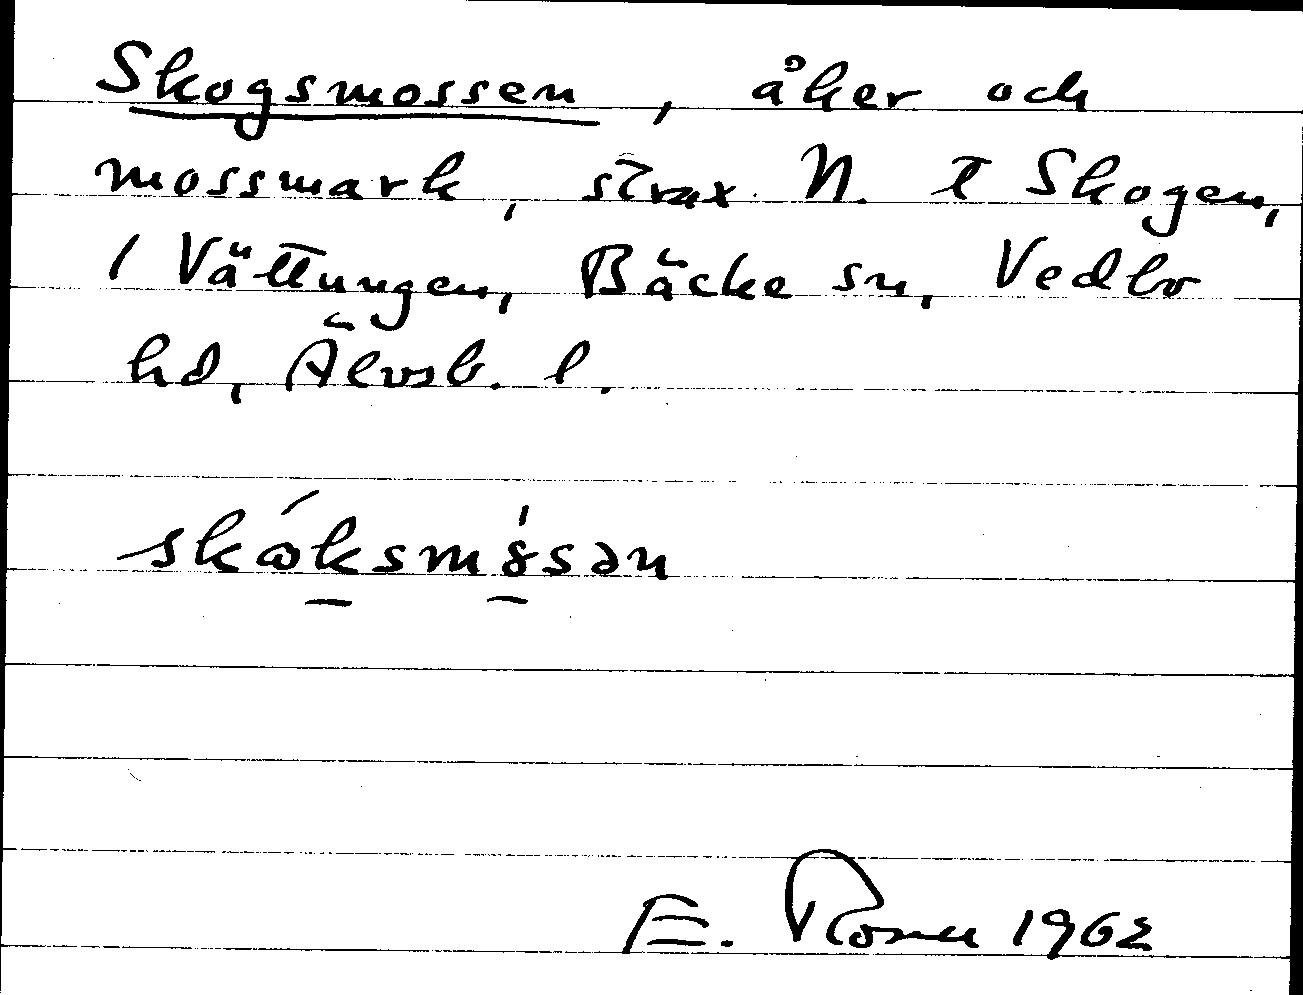 Skogsmossen, åker och
mossmark, strax N. t Skogen,
1 Vättungen, Bäcke sn, Vedbo
hd, Älvsb. l.
skɷ́ksmȣ̍sən
E. 1962